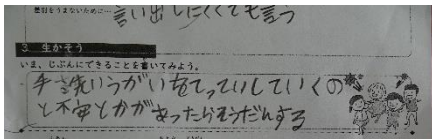 差別をうまないために…
言い出しにくくても言う
3 生かそう
いま、じぶんにできることを書いてみよう。
手洗いうがいをてっていしていくの
と不安とかがあったらそうだんする